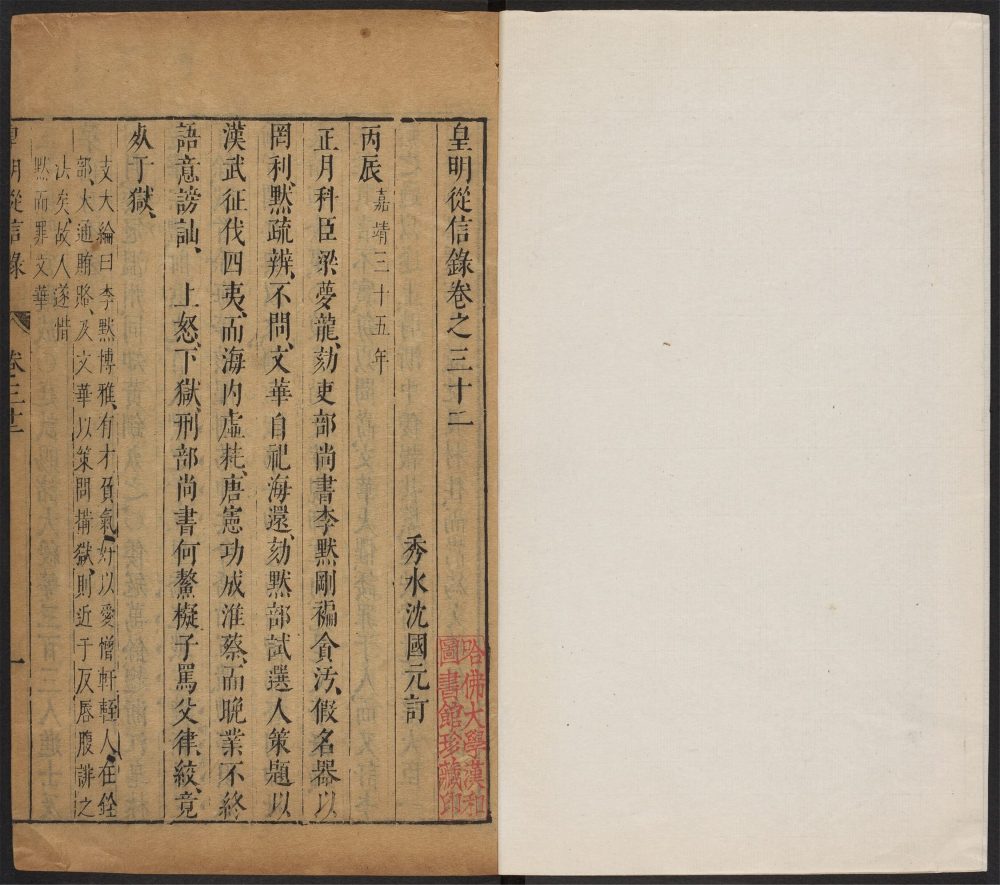 皇明從信錄卷之三十二
秀水沈國元訂
丙辰嘉靖三十五年
正月科臣梁夢龍劾吏部尚書李默剛褊貪汚、假名器以
罔利、默疏辨、不問、文華自祀海還、劾默部試選人策題以
漢武征伐四夷、而海内虛耗、唐憲功成淮蔡、而晚業不終
語意謗訕、上怒、下獄、刑部尚書何鰲擬子罵父律、絞、竟
死于獄、
支大綸曰李默博雅、有才、負氣、好以愛憎軒輊人、在銓
部、大通賄賂、及文華以策問搆獄、則近于反唇腹誹之
法矣、故人遂惜
默而罪文華
皇明從信錄
卷三十二
一
哈佛大學漢和
圖書館珍藏印